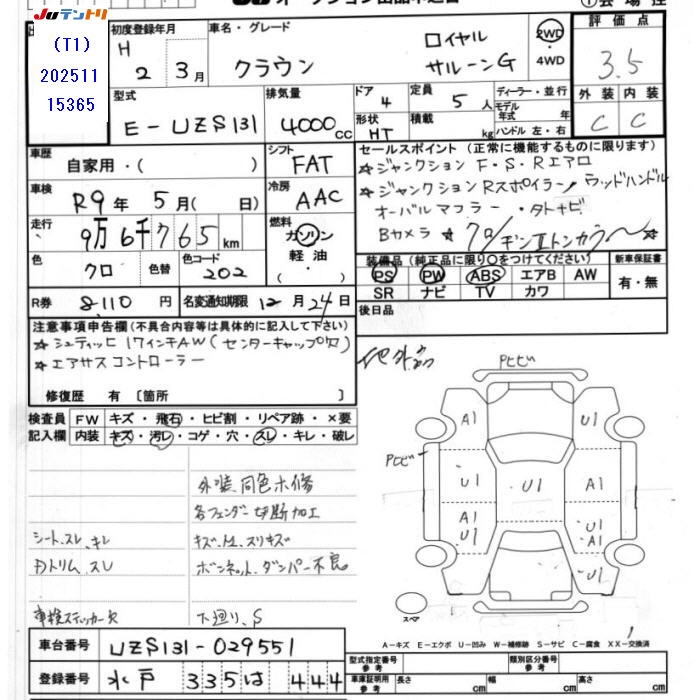 JUテントリ
(T1)
202511
15365
初度登録年月
H 2 3月
車名・グレード
クラウン
ロイヤル
サルーンG
2WD
・4WD
評価点
3.5
型式
E-UZS131
排気量
4000cc
ドア 4
定員 5人
形状 HT
積載 kg
ディーラー・並行
モデル年式 年式
ハンドル 左・右
外装 内装
C C
車歴
自家用・( )
シフト
FAT
セールスポイント (正常に機能するものに限ります)
☆ジャンクション F・S・Rエアロ
☆ジャンクションRスポイラー ウッドハンドル
オーバルマフラー・タトナビ
Bカメラ ☆クロ/ギンⅡトンカラー☆
車検
R9年 5月( 日)
冷房
AAC
走行
9万6千765km
燃料
ガソリン
軽油
( )
色
クロ
色替
色コード
202
装備品 (純正品に限り○をつけてください)
PS PW ABS エアB AW
SR ナビ TV カワ
新車保証書
有・無
R券
8,110円
名変通知期限 12月24日
後日品
注意事項申告欄 (不具合内容等は具体的に記入して下さい)
☆シュティッヒ 17インチAW (センターキャップ欠)
☆エアサスコントローラー
修復歴 有 〔箇所 〕
他外品
検査員記入欄
FW キズ・飛石・ヒビ割・リペア跡・×要
内装 キズ・汚レ・コゲ・穴・スレ・キレ・破レ
外装同色ホ修
各フェンダー切断加工
シート、スレ、キレ
キズ、A、スリキズ
Dトリム、スレ
ボンネット、ダンパー不良
車検ステッカー欠
下廻リ、S
Pヒビ
A1 U1
Pヒビ
U1 U1 A1
A1 U1
A1 U1
U1
スペア
A-キズ E-エクボ U-凹み W-補修跡 S-サビ C-腐食 XX-交換済
車台番号 UZS131-029551
登録番号 水戸 335は 444
型式指定番号 参考
類別区分番号 参考
車庫証明用 参考 長さ cm 幅 cm 高さ cm